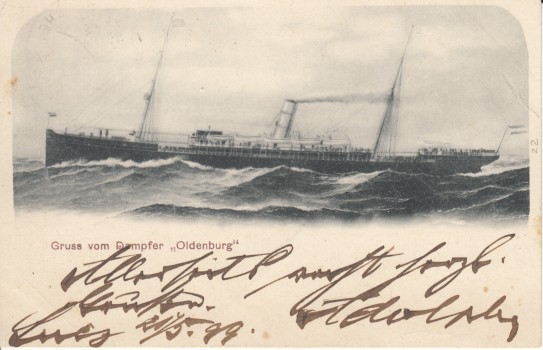 22
Gruss vom Dampfer „Oldenburg“
Allerseits recht herzl.
Grüße.
Suez 21/5.99. Adolph